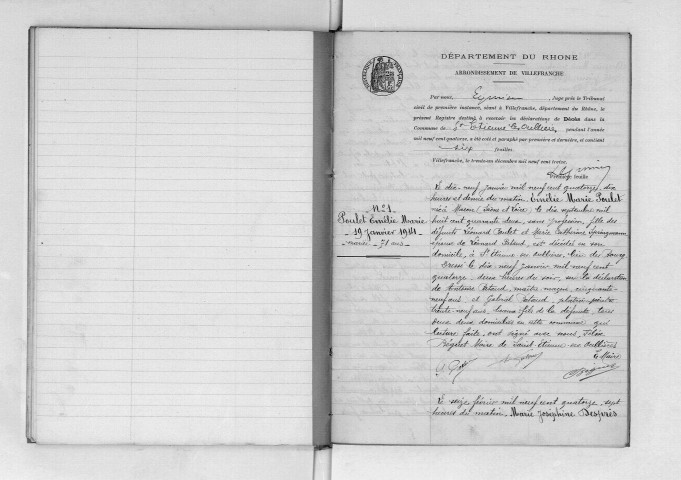 DÉPARTEMENT DU RHONE
ARRONDISSEMENT DE VILLEFRANCHE
Par nous, Juge près le Tribunal
civil de première instance, séant à Villefranche, département du Rhône, le
présent Registre destiné à recevoir les déclarations de Décès dans la
Commune de St Etienne les Oullières, pendant l'année
mil neuf cent quatorze, a été coté et paraphé par première et dernière, et contient
six feuilles.
Villefranche, le décembre mil neuf cent treize.
Première feuille
No 1
Poulet Emélie Marie
19 Janvier 1914
71 ans
Le dix neuf janvier mil neuf cent quatorze, dix
heures et demie du matin, Emélie Marie Poulet
née à Macon (Saône et Loire) le dix septembre mil
huit cent quarante deux, sans profession, fille des
défunts Léonard Poulet et Marie Catherine
épouse de Léonard, est décédée en son
domicile, à St Etienne les Oullières,
Dressé le dix-neuf janvier mil neuf cent
quatorze, deux heures du soir, sur la déclaration
de Antoine, maître maçon, cinquante-
neuf ans et Gabriel, plâtrier-peintre
trente-neuf ans, fils de la défunte, tous
deux domiciliés en cette commune qui
lecture faite, ont signé avec nous,
Maire de Saint-Etienne les Oullières
Le Maire
Le seize février mil neuf cent quatorze, sept
heures du matin, Marie Joséphine Desprès